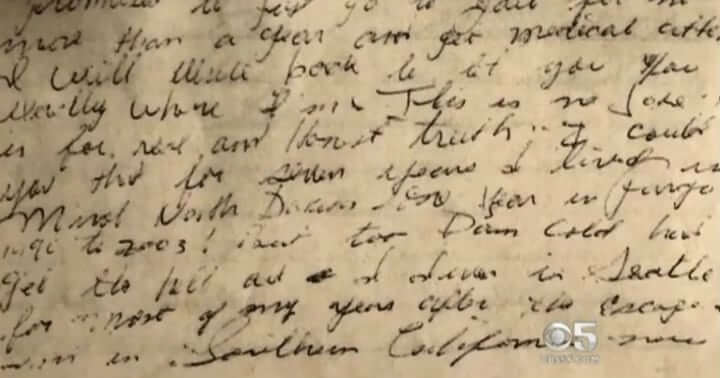 promises to first go to jail for no
more than a year and get medical atten
I will write back to let you
exactly where I'm. This is no Joke.
is for real and Honest truth - I could
you that for seven years I lived in
Minot North Dakota one year in Fargo
to 2003! But too Dam cold had
get the hell out I lived in Seattle
for most of my years after the escape
in Southern California now
CBS5.COM